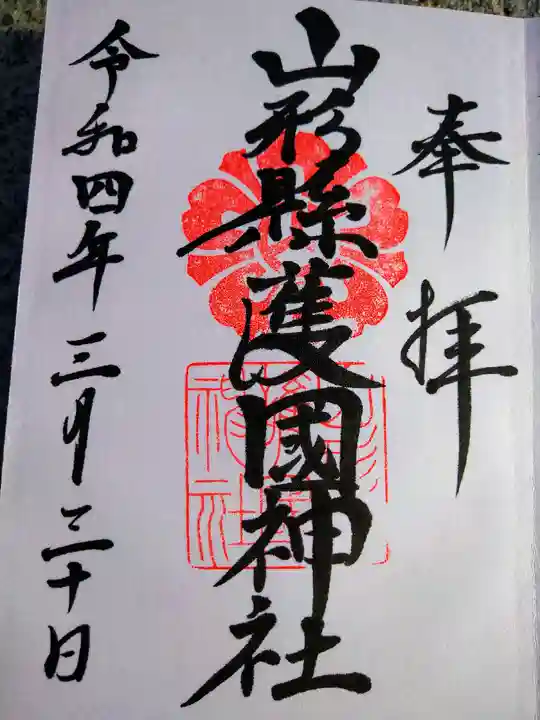 奉拝
山形縣護國神社
令和四年三月二十日